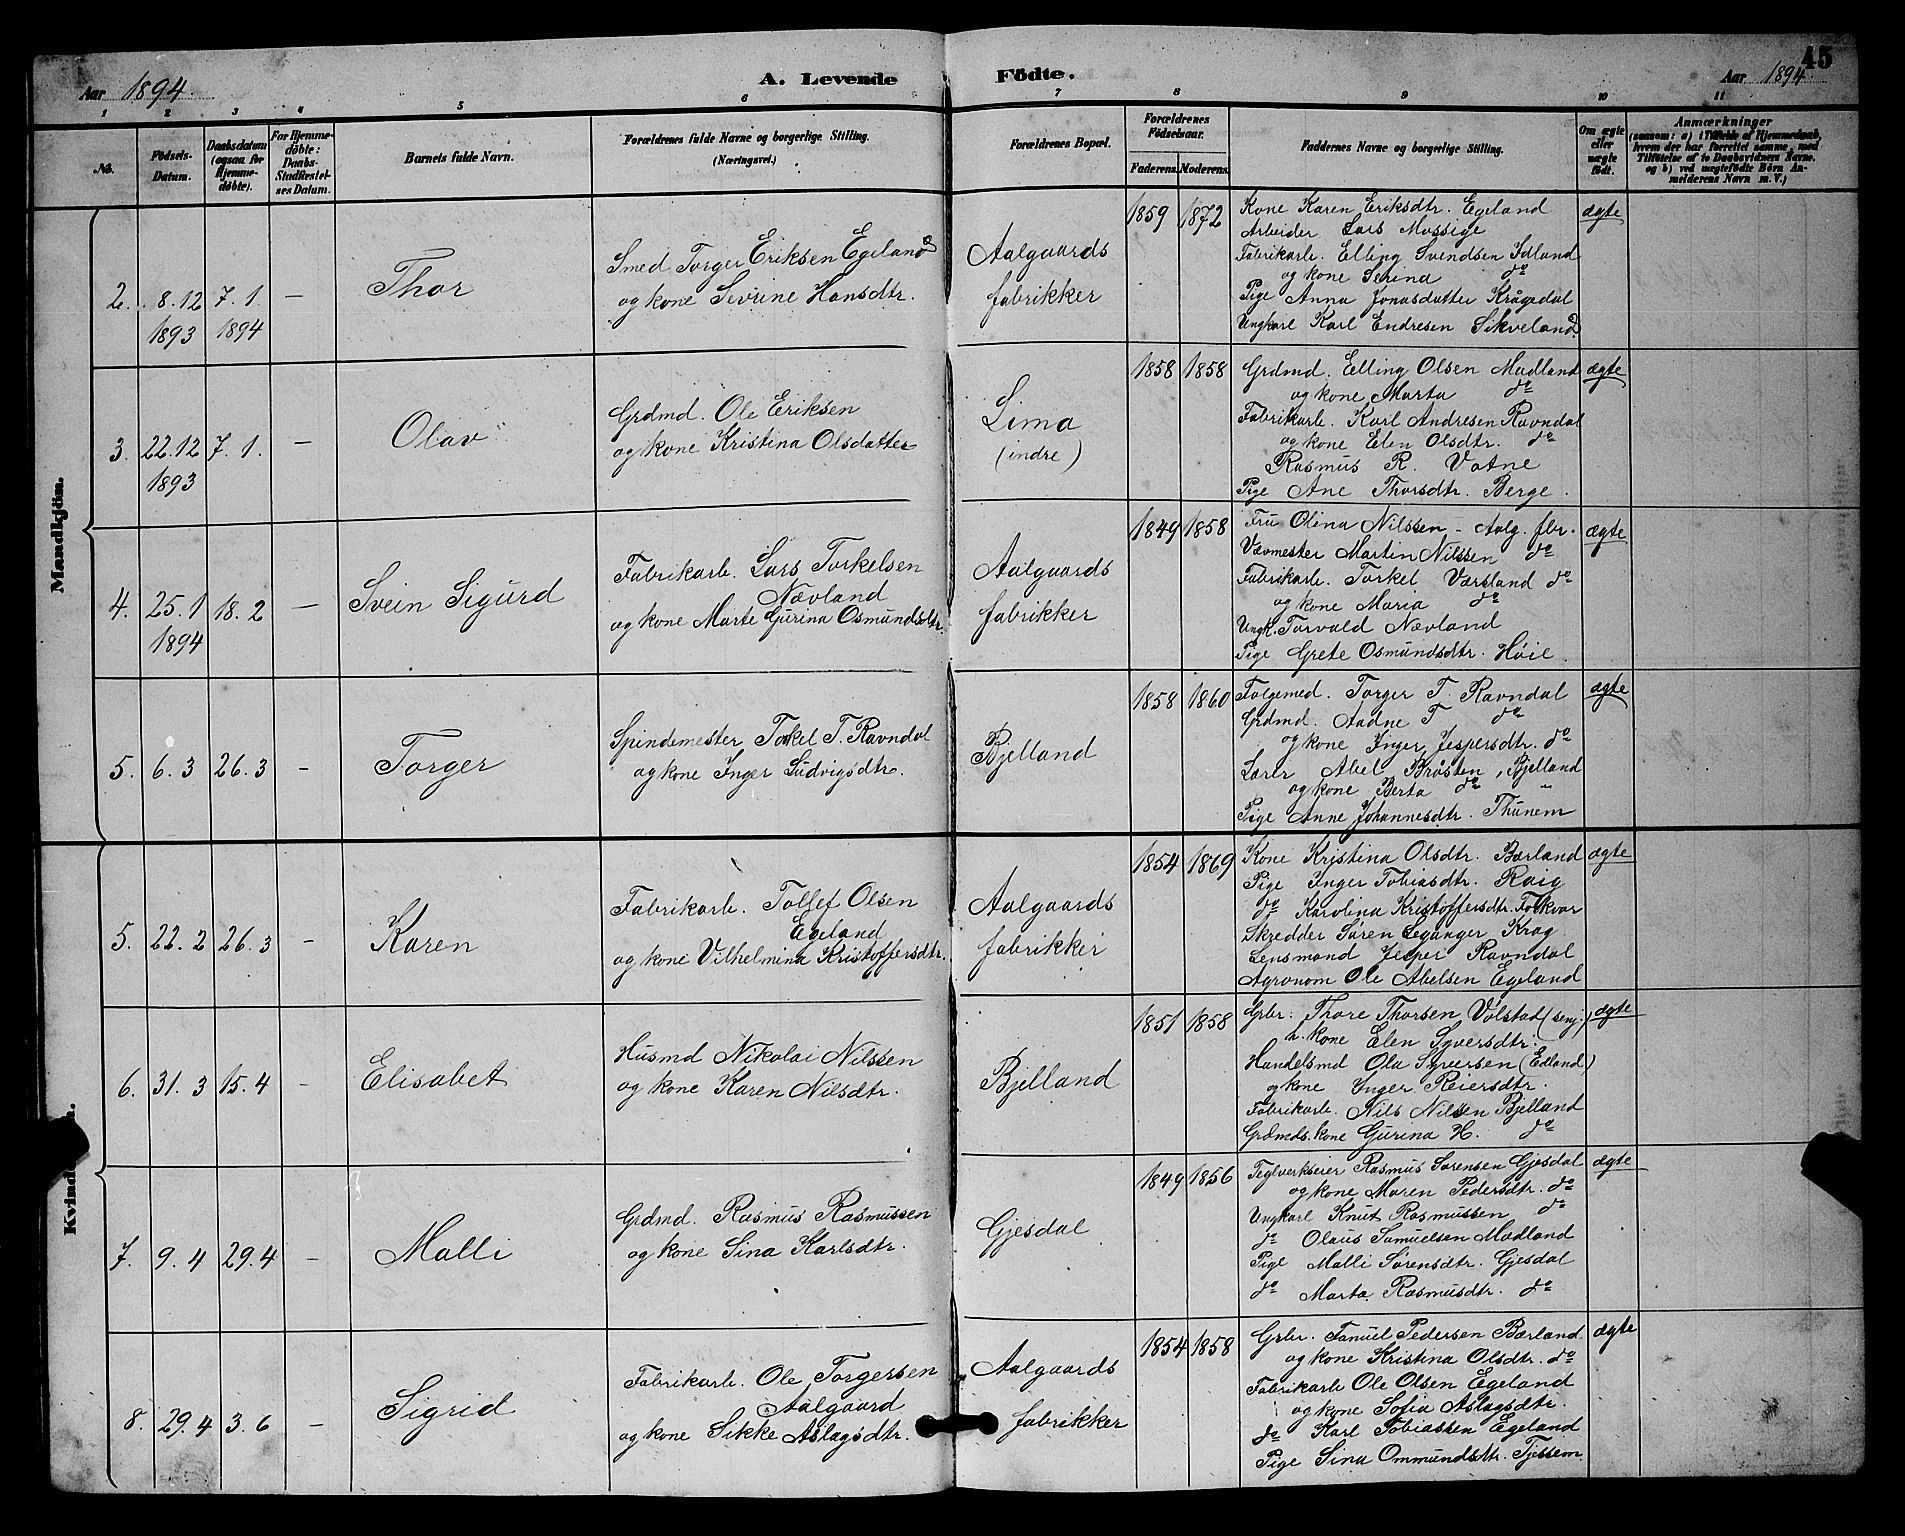 45
Aar 1894.
A. Levende Födte.
Aar 1894.
1 2 3 4 5 6 7 8 9 10 11
No.
Födsels-
Datum.
Daabsdatum
(ogsaa for
Hjemme-
döbte).
For Hjemme-
döbte:
Daabs-
Stadfæstel-
ses Datum.
Barnets fulde Navn.
Forældrenes fulde Navne og borgerlige Stilling.
(Næringsvei.)
Forældrenes Bopæl.
Forældrenes
Födselsaar.
Faderens. Moderens.
Faddernes Navne og borgerlige Stilling.
Om ægte
eller
uægte
födt.
Anmærkninger
(saasom: a) i Tilfælde af Hjemmedaab,
hvem der har forrettet samme, med
Tilföielse af to Daabsvidners Navne,
og b) ved uægtefödte Börn An-
melderens Navn m. V.)
Mandkjön.
2. 8.12 7.1. —
1893 1894
Thor
Smed Torger Eriksen Egeland
og kone Sevrine Hansdtr.
Aalgaards
fabrikker
1859 1872
Kone Karen Eriksdtr. Egeland
Arbeider Lars Mossige
Fabrikarb. Elling Svendsen Idland
og kone Serina do
Pige Anna Jonasdatter Krågedal
Ungkarl Karl Endresen Sikveland
ægte
3. 22.12 7.1. —
1893
Olav
Grdmd. Ole Eriksen
og kone Kristina Olsdatter
Lima
(indre)
1858 1858
Grdmd. Elling Olsen Madland
og kone Marta do
Fabrikarb. Karl Andresen Ravndal
og kone Elen Olsdtr. do
Rasmus R. Vatne
Pige Ane Thorsdtr. Berge.
ægte
4. 25.1 18.2 —
1894
Svein Sigurd
Fabrikarb. Lars Torkelsen
Nævland
og kone Marte Gurina Osmundsdtr.
Aalgaards
fabrikker
1849 1858
Fru Olina Nilssen - Aalg. fbr.
Vævmester Martin Nilssen do
Fabrikarb. TorkelVærsland do
og kone Maria do
Ungk. Torvald Nævland
Pige Grete Osmundsdtr. Høie.
ægte
5. 6.3 26.3 —
Torger
Spindemester Torkel T. Ravndal
og kone Inger Ludvigsdtr.
Bjelland
1858 1860
Folgemd. Torger T. Ravndal
Grdmd. Aadne T do
og kone Inger Jespersdtr. do
Lærer Abel Bråsten, Bjelland
og kone Berta do "
Pige Anne Johannesdtr. Thunem
ægte
5. 22.2 26.3 —
Karen
Fabrikarb. Tollef Olsen
Egeland
og kone Vilhelmina Kristoffersdtr.
Aalgaards
fabrikker
1854 1869
Kone Kristina Olsdtr. Bærland
Pige Inger Tobiasdtr. Raig
do Karolina Kristoffersdtr. Folkvor
Skredder Søren Leganger Krag
Lensmand Jesper Ravndal
Agronom Ole Abelsen Egeland
ægte
6. 31.3 15.4 —
Elisabet
Husmd Nikolai Nilssen
og kone Karen Nilsdtr.
Bjelland
1851 1858
Grbr. Thore Thorsen Volstad (senj.)
h. kone Elen Syversdtr.
Handelsmd Ola Syversen (Edland)
og kone Inger Reiersdtr.
Fabrikarb. Nils Nilsen Bjelland
Grdmds. kone Gurina H. do
ægte
7. 9.4 29.4 —
Malli
Grdmd. Rasmus Rasmussen
og kone Sina Karlsdtr.
Gjesdal
1849 1856
Teglverkseier Rasmus Sørensen Gjesdal
og kone Maren Pedersdtr. do
Ungkarl Knut Rasmussen do
do Olaus Samuelsen Madland
Pige Malli Sørensdtr. Gjesdal
do Marta Rasmusdtr. do
ægte
8. 29.4 3.6 —
Sigrid
Fabrikarb. Ole Torgersen
Aalgaard
og kone Sikke Aslagsdtr.
Aalgaards
fabrikker
1854 1858
Grbr. Tanuel Pedersen Bærland
og kone Kristina Olsdtr. do
Fabrikarb Ole Olsen Egeland
og kone Sofia Aslagsdtr.
do Karl Tobiassen Egeland
Pige Sina Ommundsdtr. Tjessem
ægte